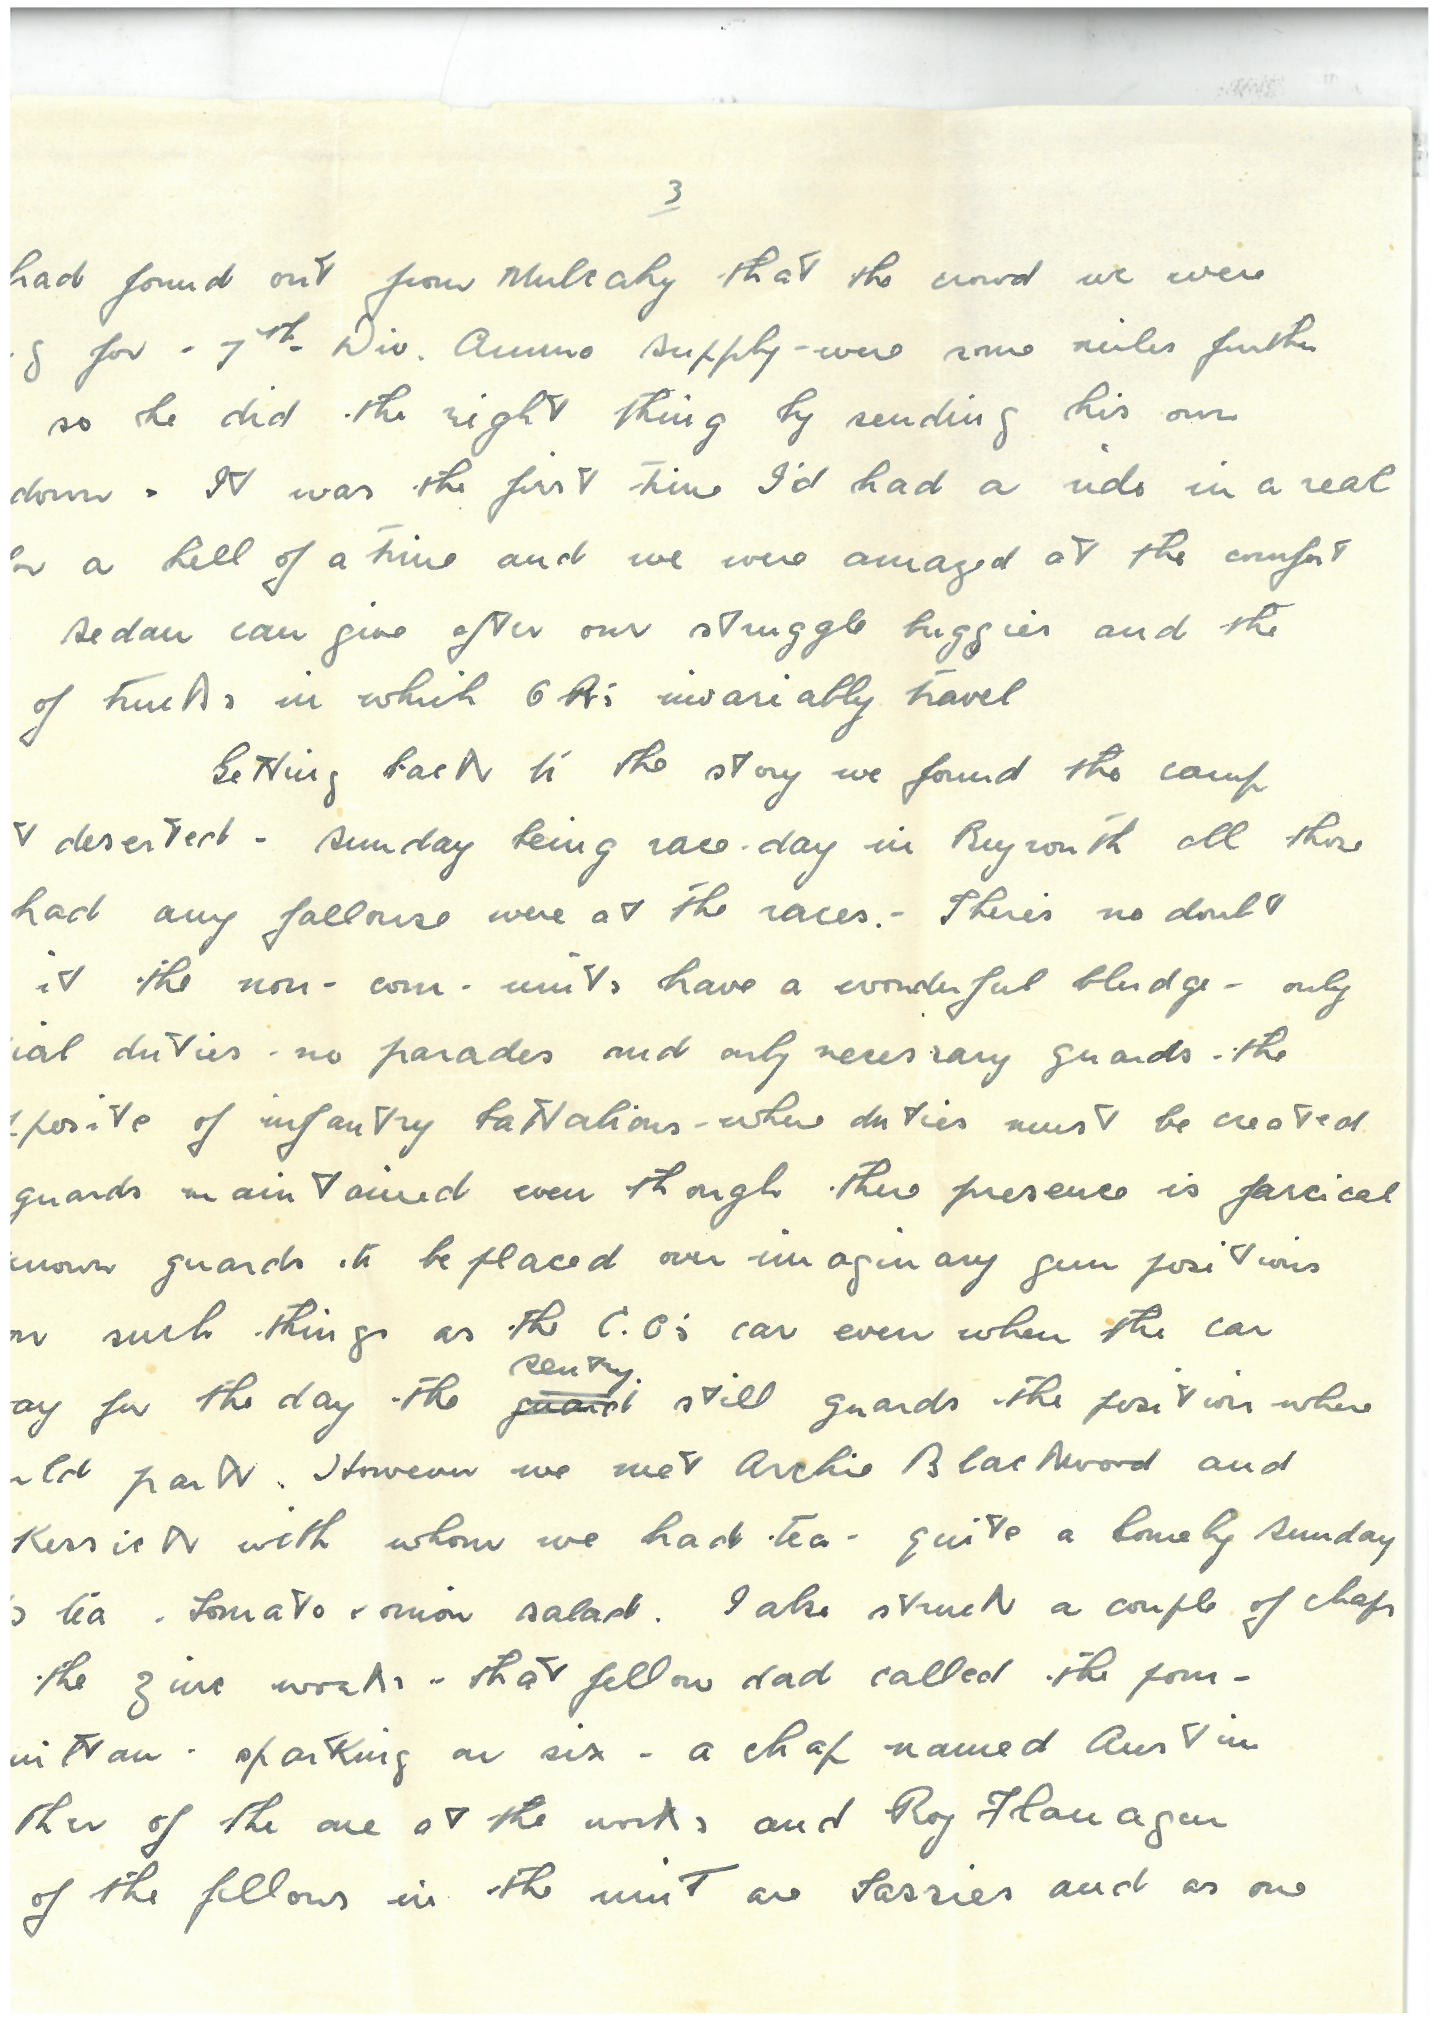 3
had found out from Mulcahy that the crowd we were
g for - 7th Div. Ammo supply - were some miles further
so he did the right thing by sending his own
down. It was the first time I'd had a ride in a real
a hell of a time and we were amazed at the comfort
sedan can give after our struggle buggies and the
of trucks in which ORs invariably travel
Getting back to the story we found the camp
t deserted - Sunday being race-day in Beyrouth all those
had any fallouse were at the races. - There's no doubt
it the non-com-units have a wonderful bludge - only
ial duties - no parades and only necessary guards - the
posite of infantry battalions - where duties must be created
guards maintained even though there presence is farcical
known guards to be placed over imaginary gun positions
or such things as the C.O's car even when the car
ay for the day the sentry. ~~guard~~ still guards the position where
uld park. However we met Archie Blackwood and
Kerrick with whom we had tea - quite a homely Sunday
tea - tomato & onion salad. I also struck a couple of chaps
the zinc works - that fellow dad called the four-
sparking on six - a chap named Austin
ther of the one at the works and Roy Flanagan
of the fellows in the unit are Tassies and as one